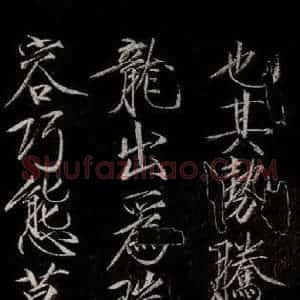 也其勢騰
龍出爲瑞
容巧態莫
Shufaziliao.COM